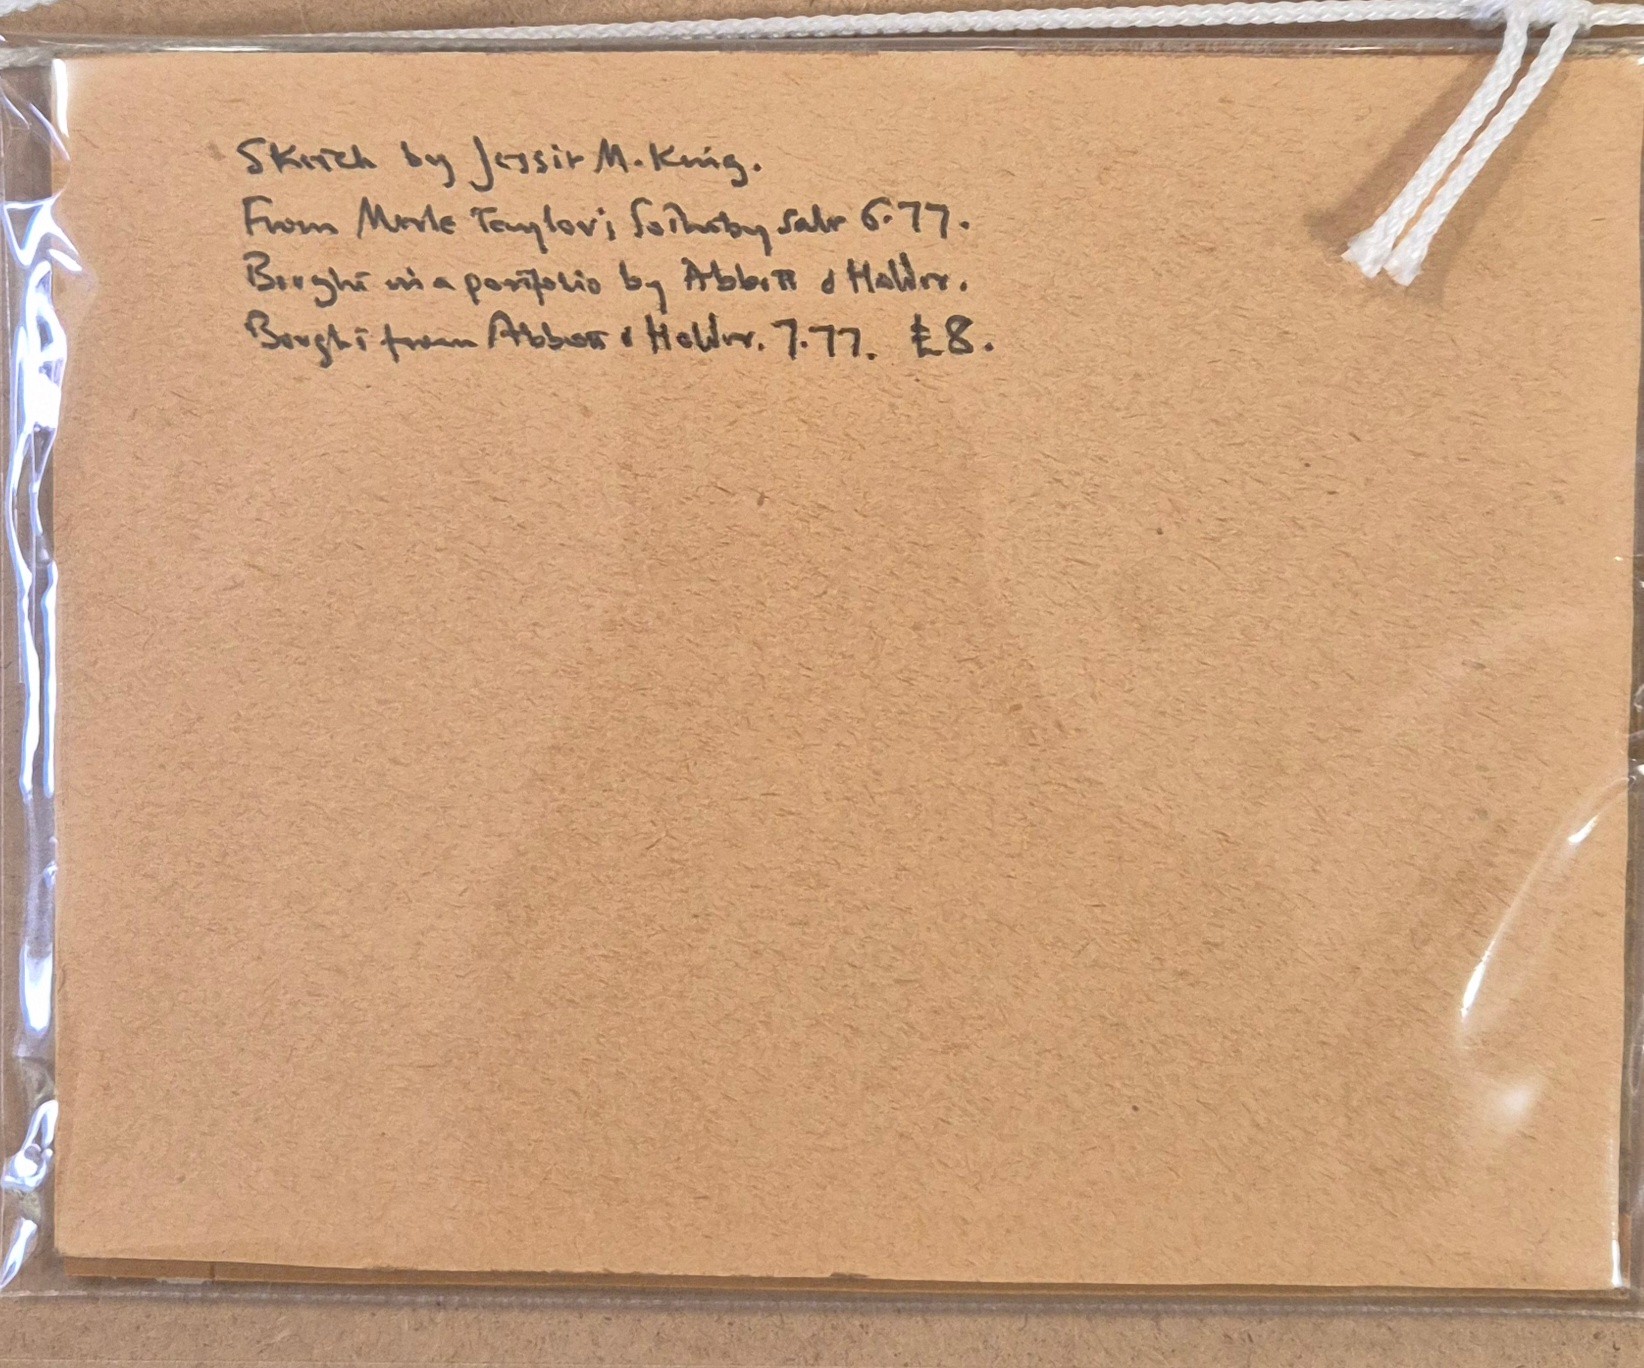 Sketch by Jessie M. King.
From Merle Taylor's Sotheby sale 6.77.
Bought in a portfolio by Abbott & Holder.
Bought from Abbott & Holder. 7.77. £8.